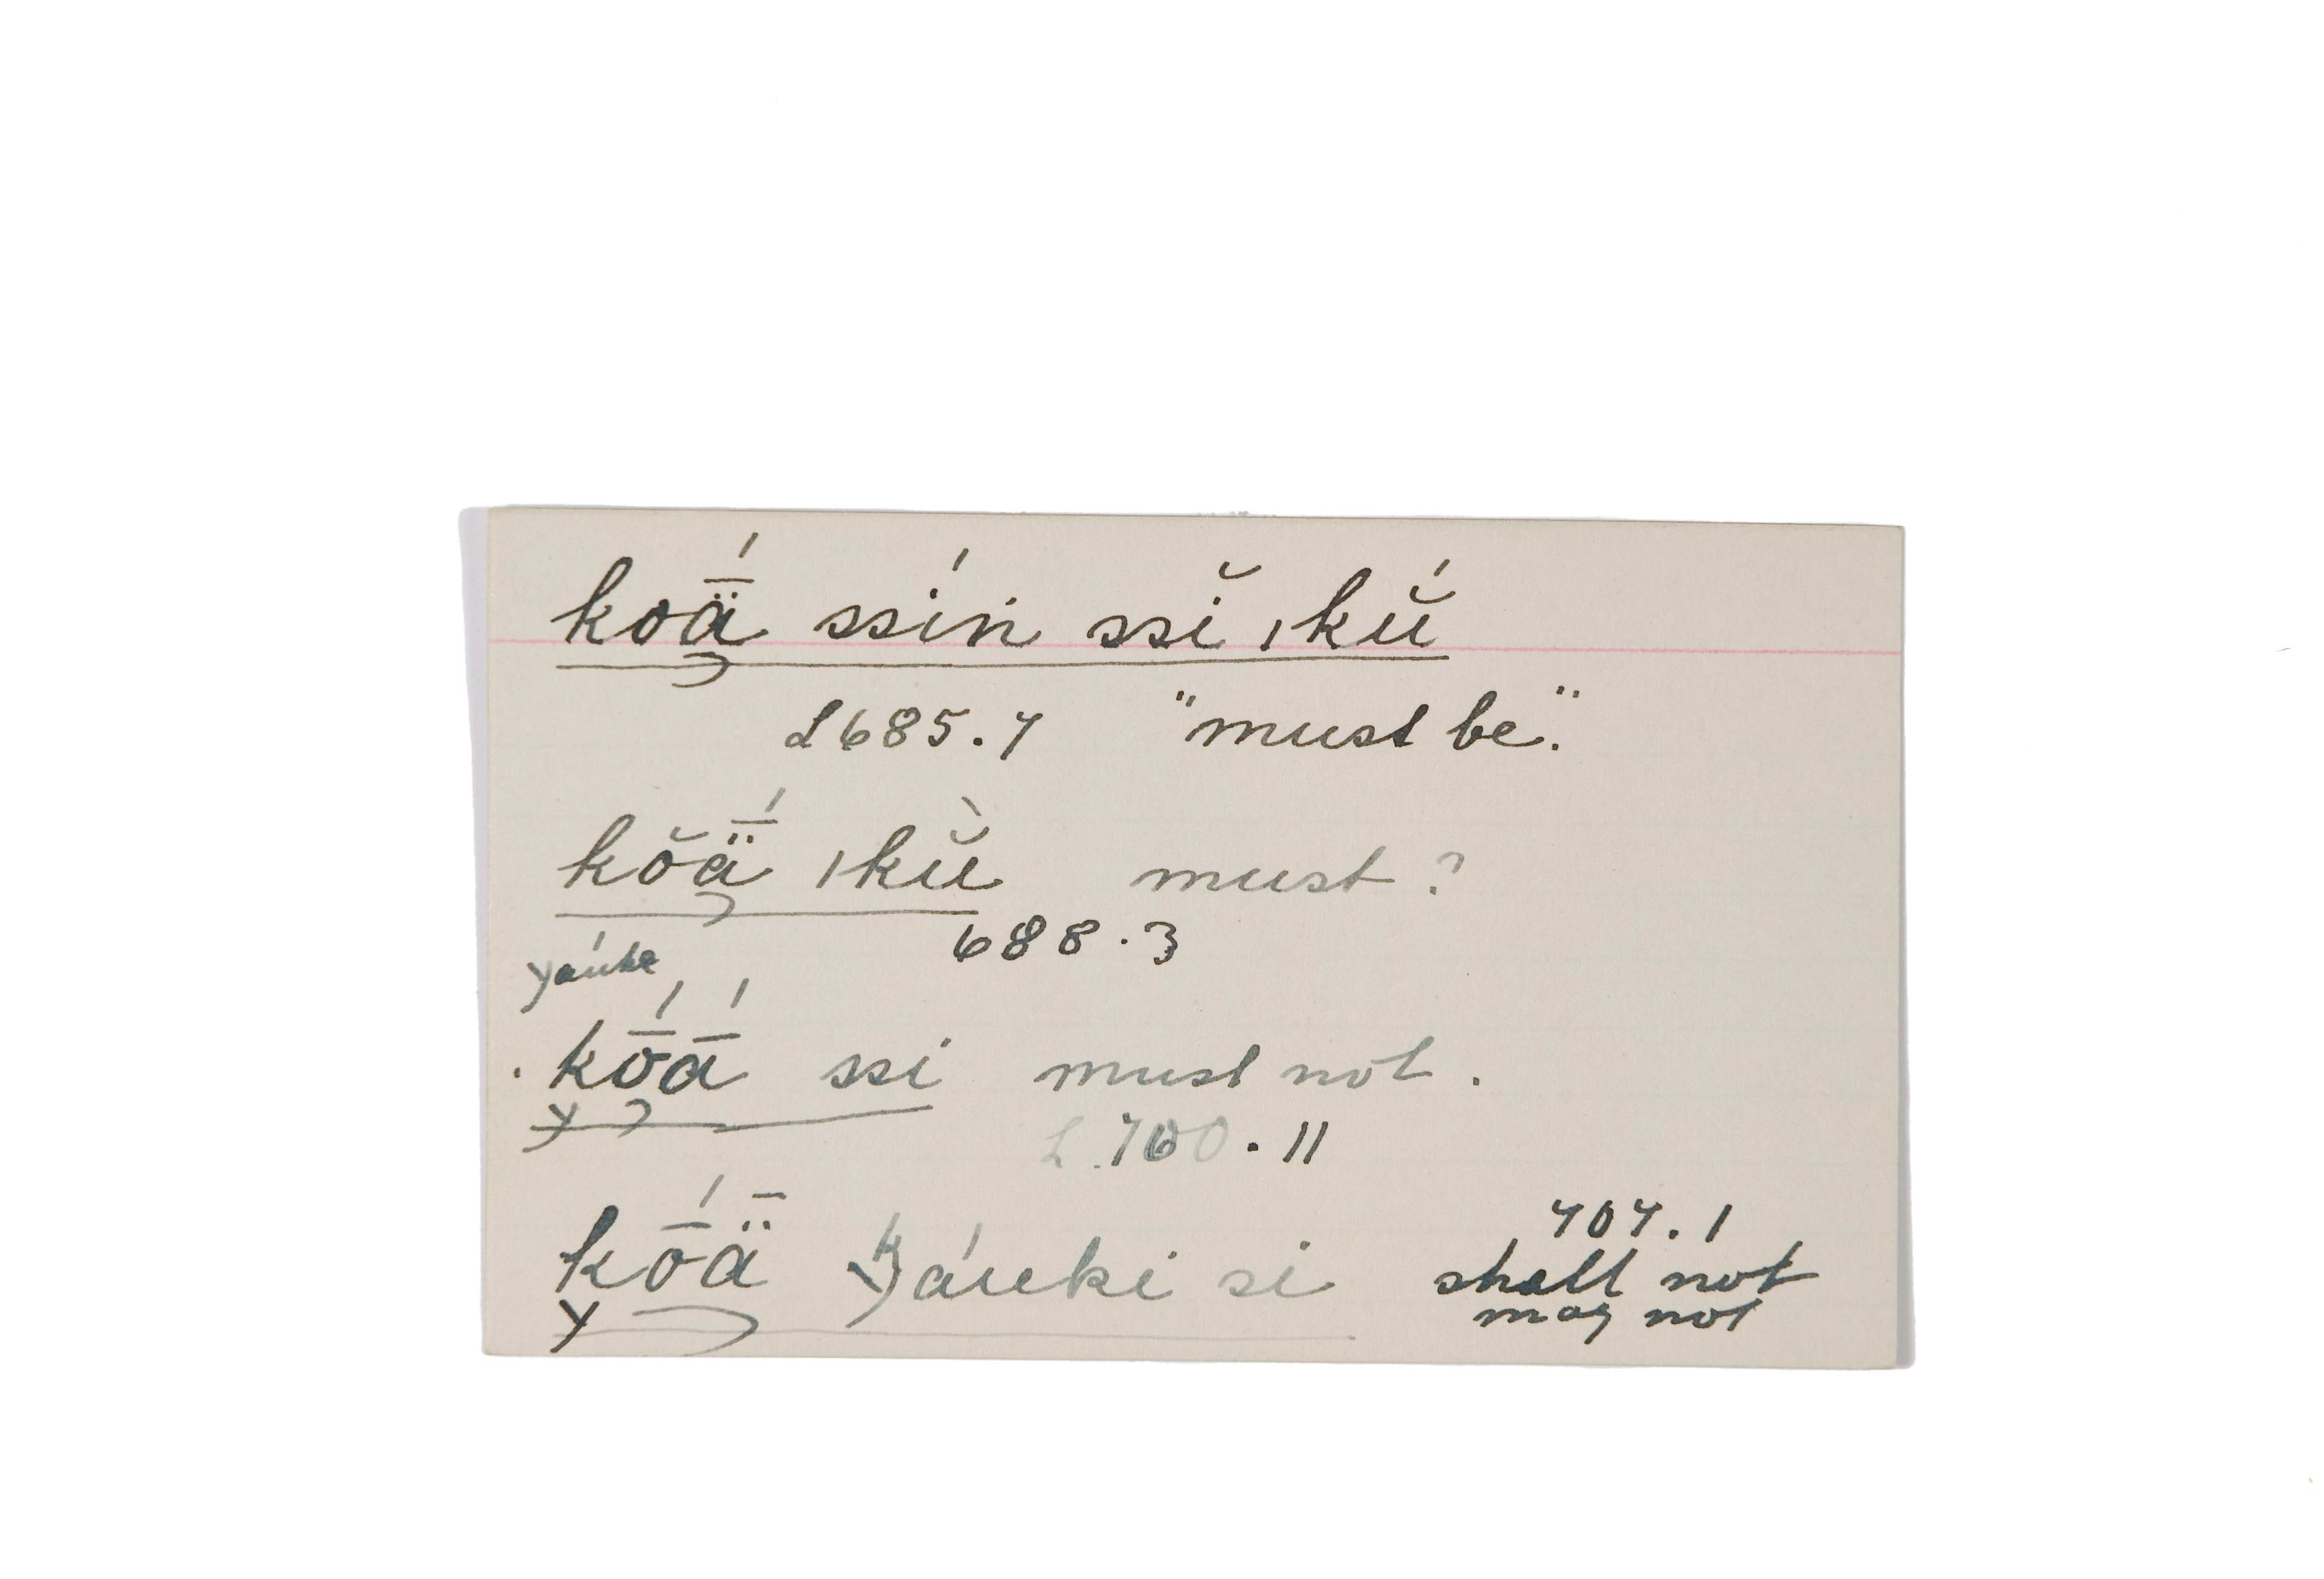 koǟ́ ssíń ssĭ ıkŭ́
L685.7 "must be".
kŏǟ́ ıkŭ̀ must ?
688.3
yaúke
kṓā́ ssi must not.
L.700.11
kṓǟ yáuki si
707.1
shall not
may not